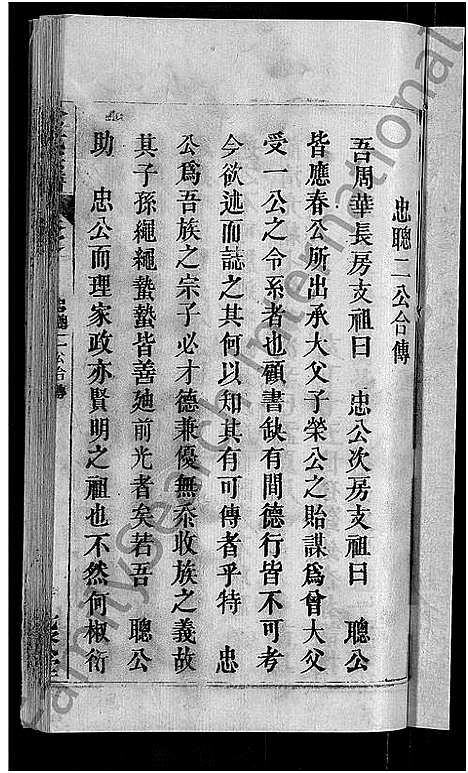 忠聰二公合傳
吾周華長房支祖曰　忠公次房支祖曰　聰公
皆應春公所出承大父子榮公之貽謀爲曾大父
受一公之令系者也顧書缺有間德行皆不可考
今欲述而誌之其何以知其有可傳者乎特　忠
公爲吾族之宗子必才德兼優無忝收族之義故
其子孫繩繩蟄蟄皆善廸前光者矣若吾　聰公
助　忠公而理家政亦賢明之祖也不然何椒衍
忠聰二公合傳
Familysearch International